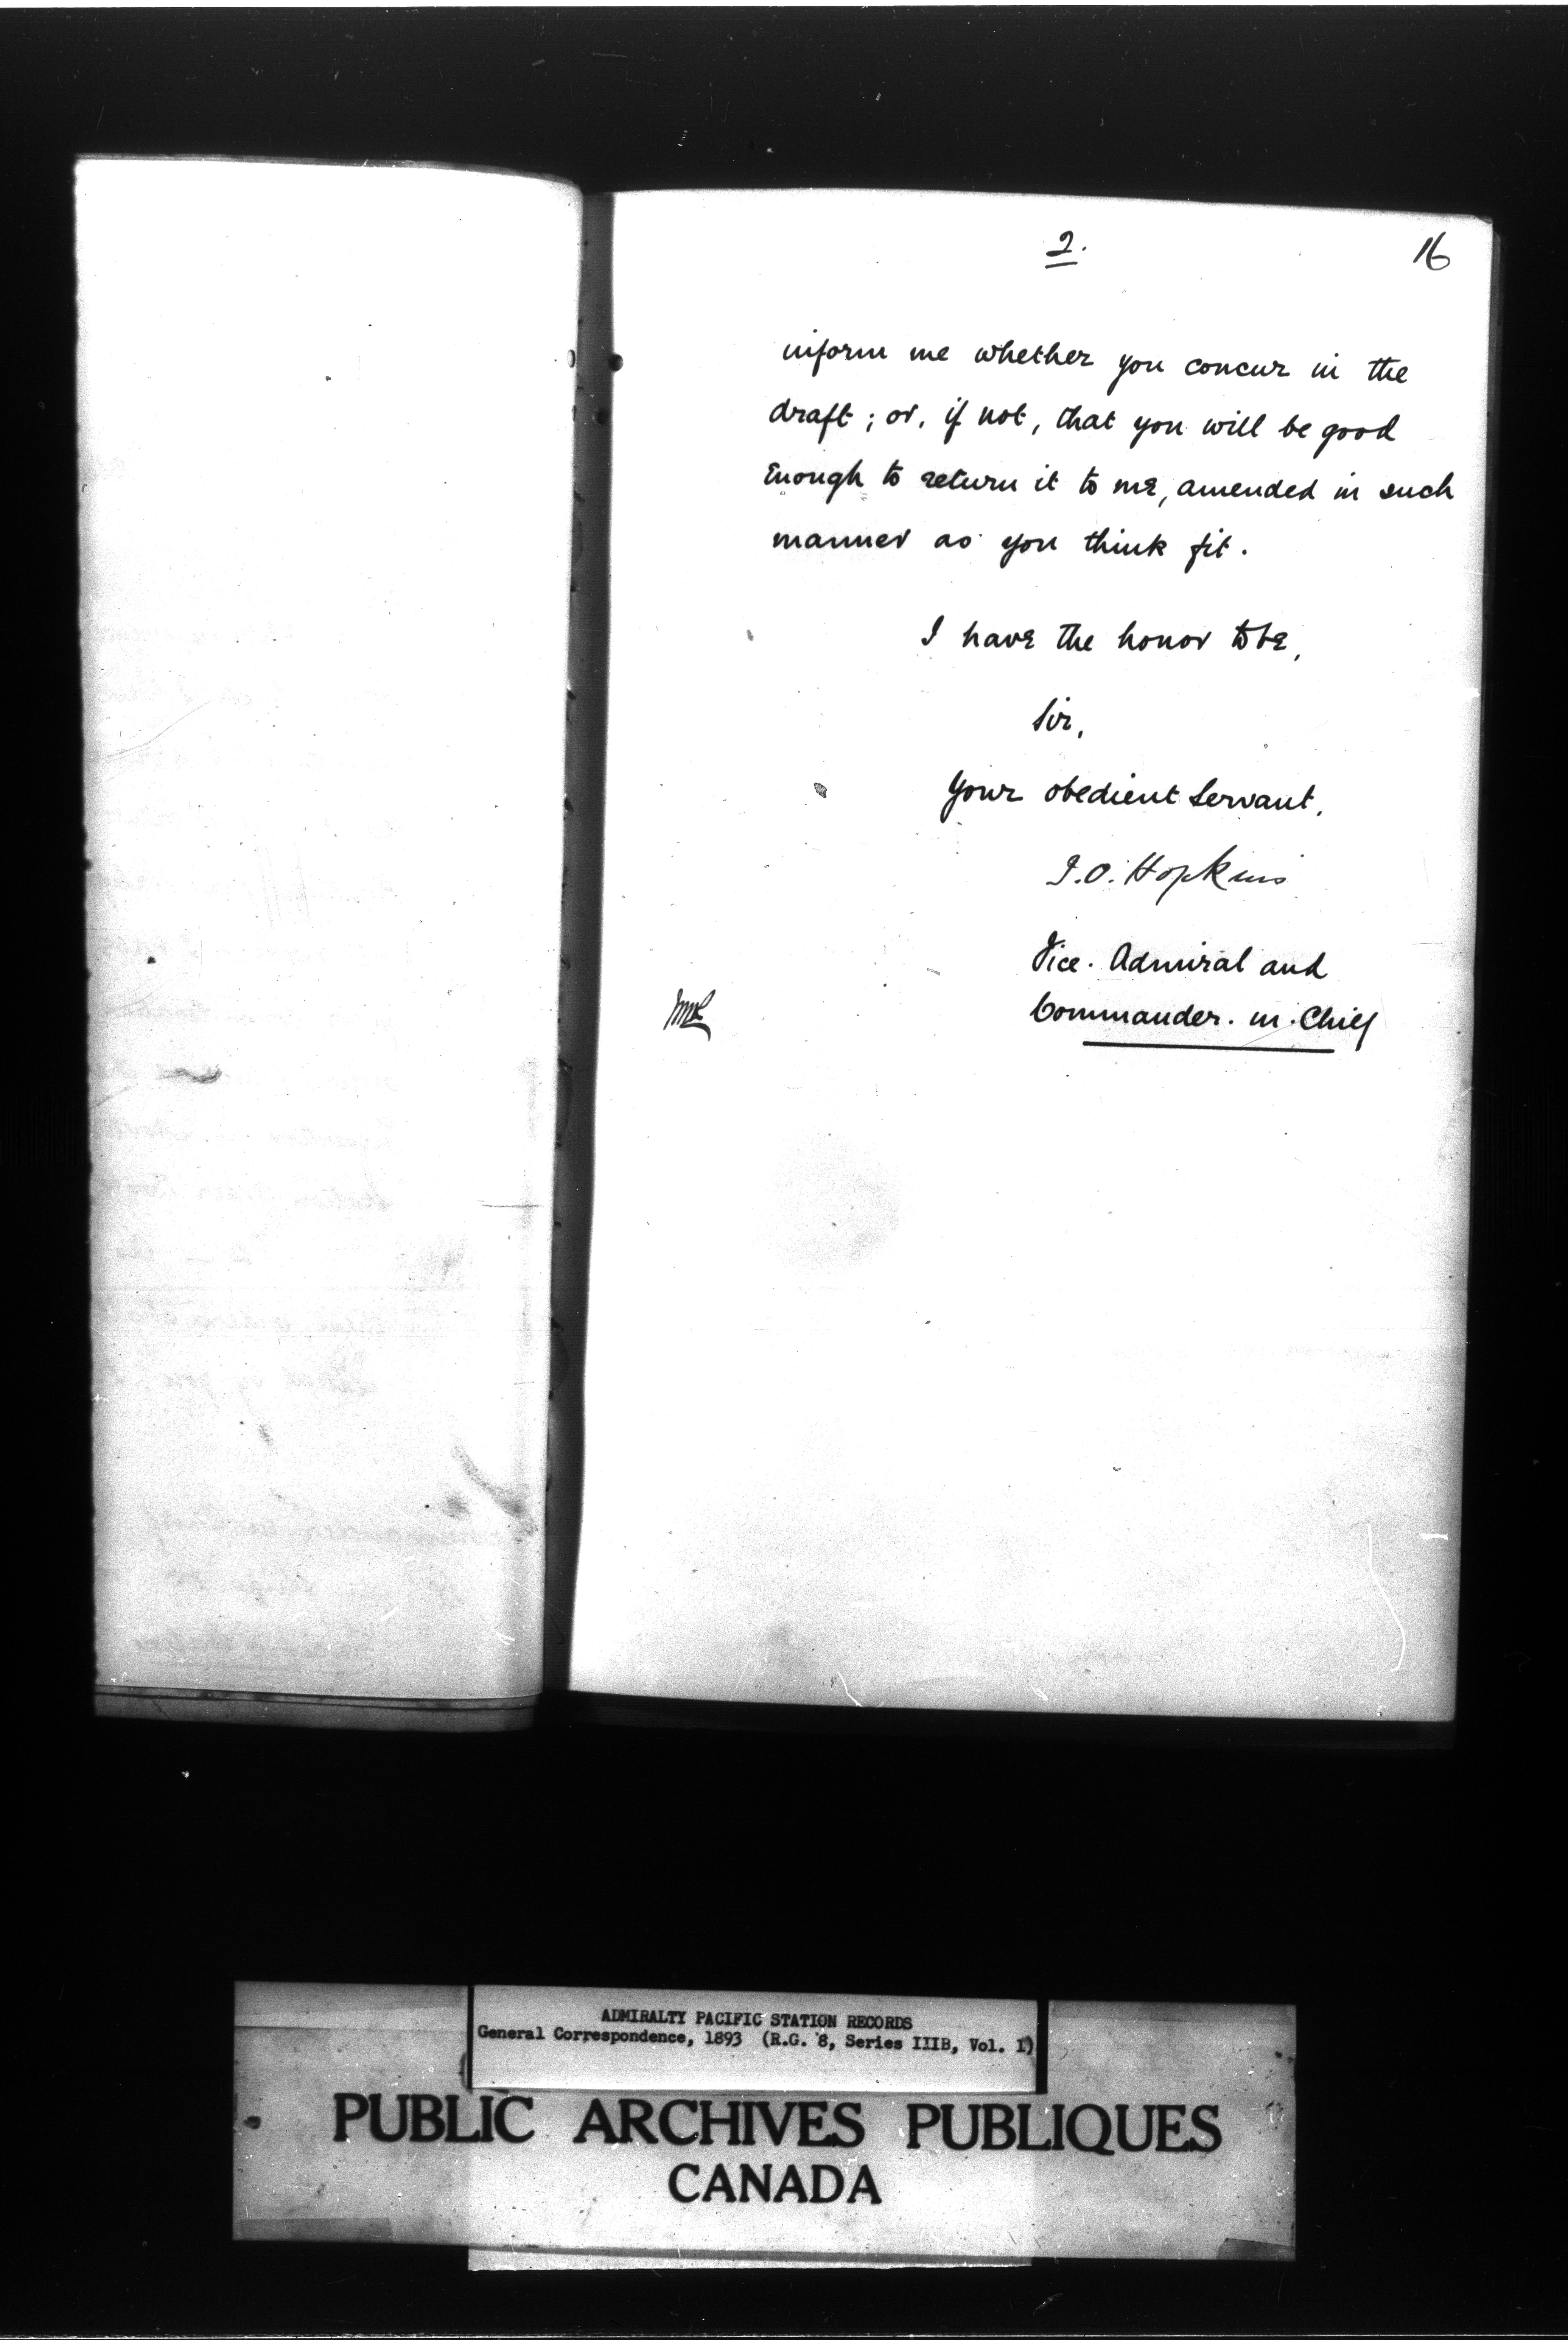 2.
16
inform me whether you concur in the
draft; or, if not, that you will be good
enough to return it to me, amended in such
manner as you think fit.
I have the honor to be,
Sir,
Your obedient Servant,
J.O. Hopkins
Vice. Admiral and
Commander. in. Chief
ADMIRALTY PACIFIC STATION RECORDS
General Correspondence, 1893 (R.G. 8, Series IIIB, Vol. 1)
PUBLIC ARCHIVES PUBLIQUES
CANADA